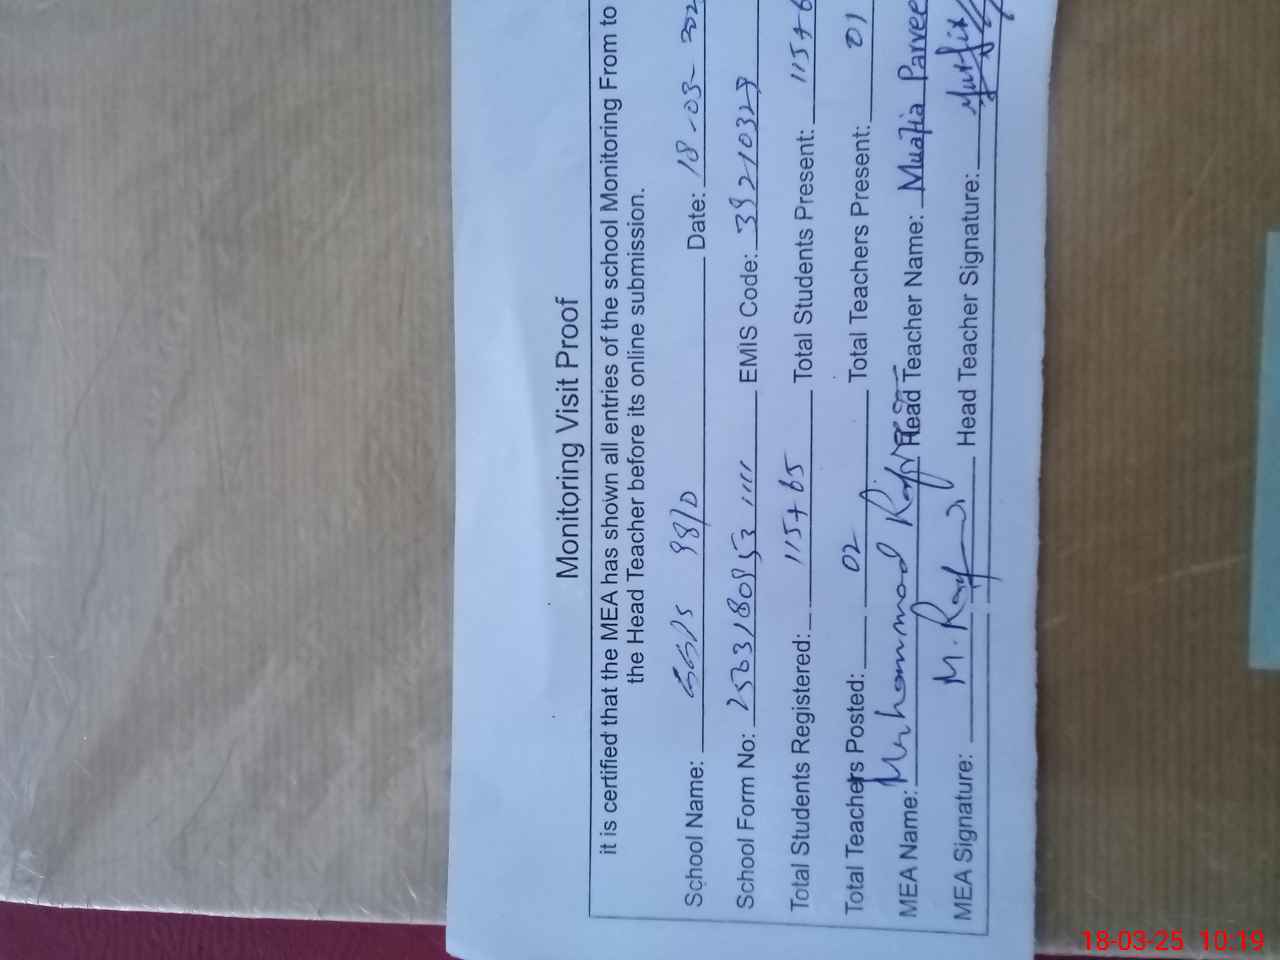 Monitoring Visit Proof
it is certified that the MEA has shown all entries of the school Monitoring From to
the Head Teacher before its online submission.
School Name: GGPS 98/D Date: 18-03-202
School Form No: EMIS Code: 39210329
Total Students Registered: 115+65 Total Students Present: 115+6
Total Teachers Posted: 02 Total Teachers Present: 01
MEA Name: Muhammad Head Teacher Name: Parvee
MEA Signature: M. Head Teacher Signature:
18-03-25 10:19